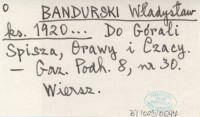 o
BANDURSKI Władysław
ks. 1920... Do Górali
Spisza, Orawy i Czacy.
— Gaz. Podh. 8, nr 30.
Wiersz.